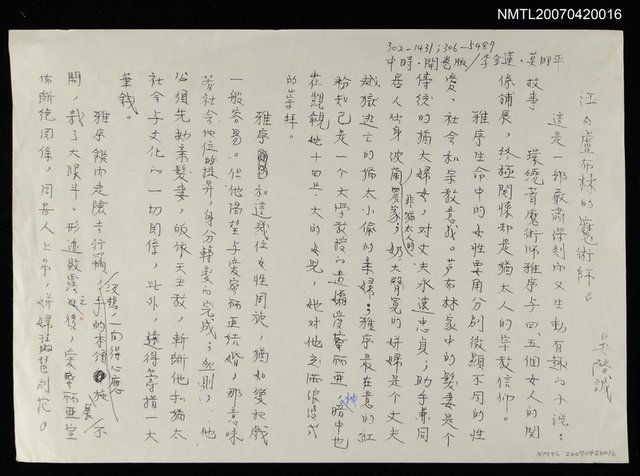 NMTL20070420016
302-1431;306-5487
中時·開卷版/李金蓮·莫昭平
江《盧布林的魔術師》
這是一部最高深刻而又生動有趣的小說:
故事環繞著魔術師雅序与四、五個女人的関
係鋪展,終極関懷却是猶太人的宗教信仰。
雅序生命中的女性要角分別徵顯不同的性
愛、社會和宗教意義。芦布林家中的髮妻是个
傳統的猶太婦女,对丈夫永遠忠貞;助手兼同
居人出身波蘭農家;非猶太人的奶大臀寬的姘婦是个丈夫
越獄逃亡的猶太小偷的棄婦;雅序最在意的紅
粉知己是一个大學教授的遺孀愛蜜麗亞,他
也
在覬覦她十四歲大的女兒,她对他
的崇拜。
雅序和這幾位女性周旋,猶如變把戲
一般容易。但他渴望与愛蜜麗亞結婚,那意味
著社会地位的提昇,身分轉變的完成;然則,他
必須先劝棄髮妻,皈依天主教,斬断他和猶太
社会与文化的一切関係,此外還得籌措一大
筆錢。
雅序鋌而走險去行竊,
沒想一向得心應
手的本領施不
開,栽了大跟斗。形迹敗露之後,愛蜜麗亞宣
佈断絕関係,同居人上吊,姘婦琵琶別抱。
NMTL 20070420016